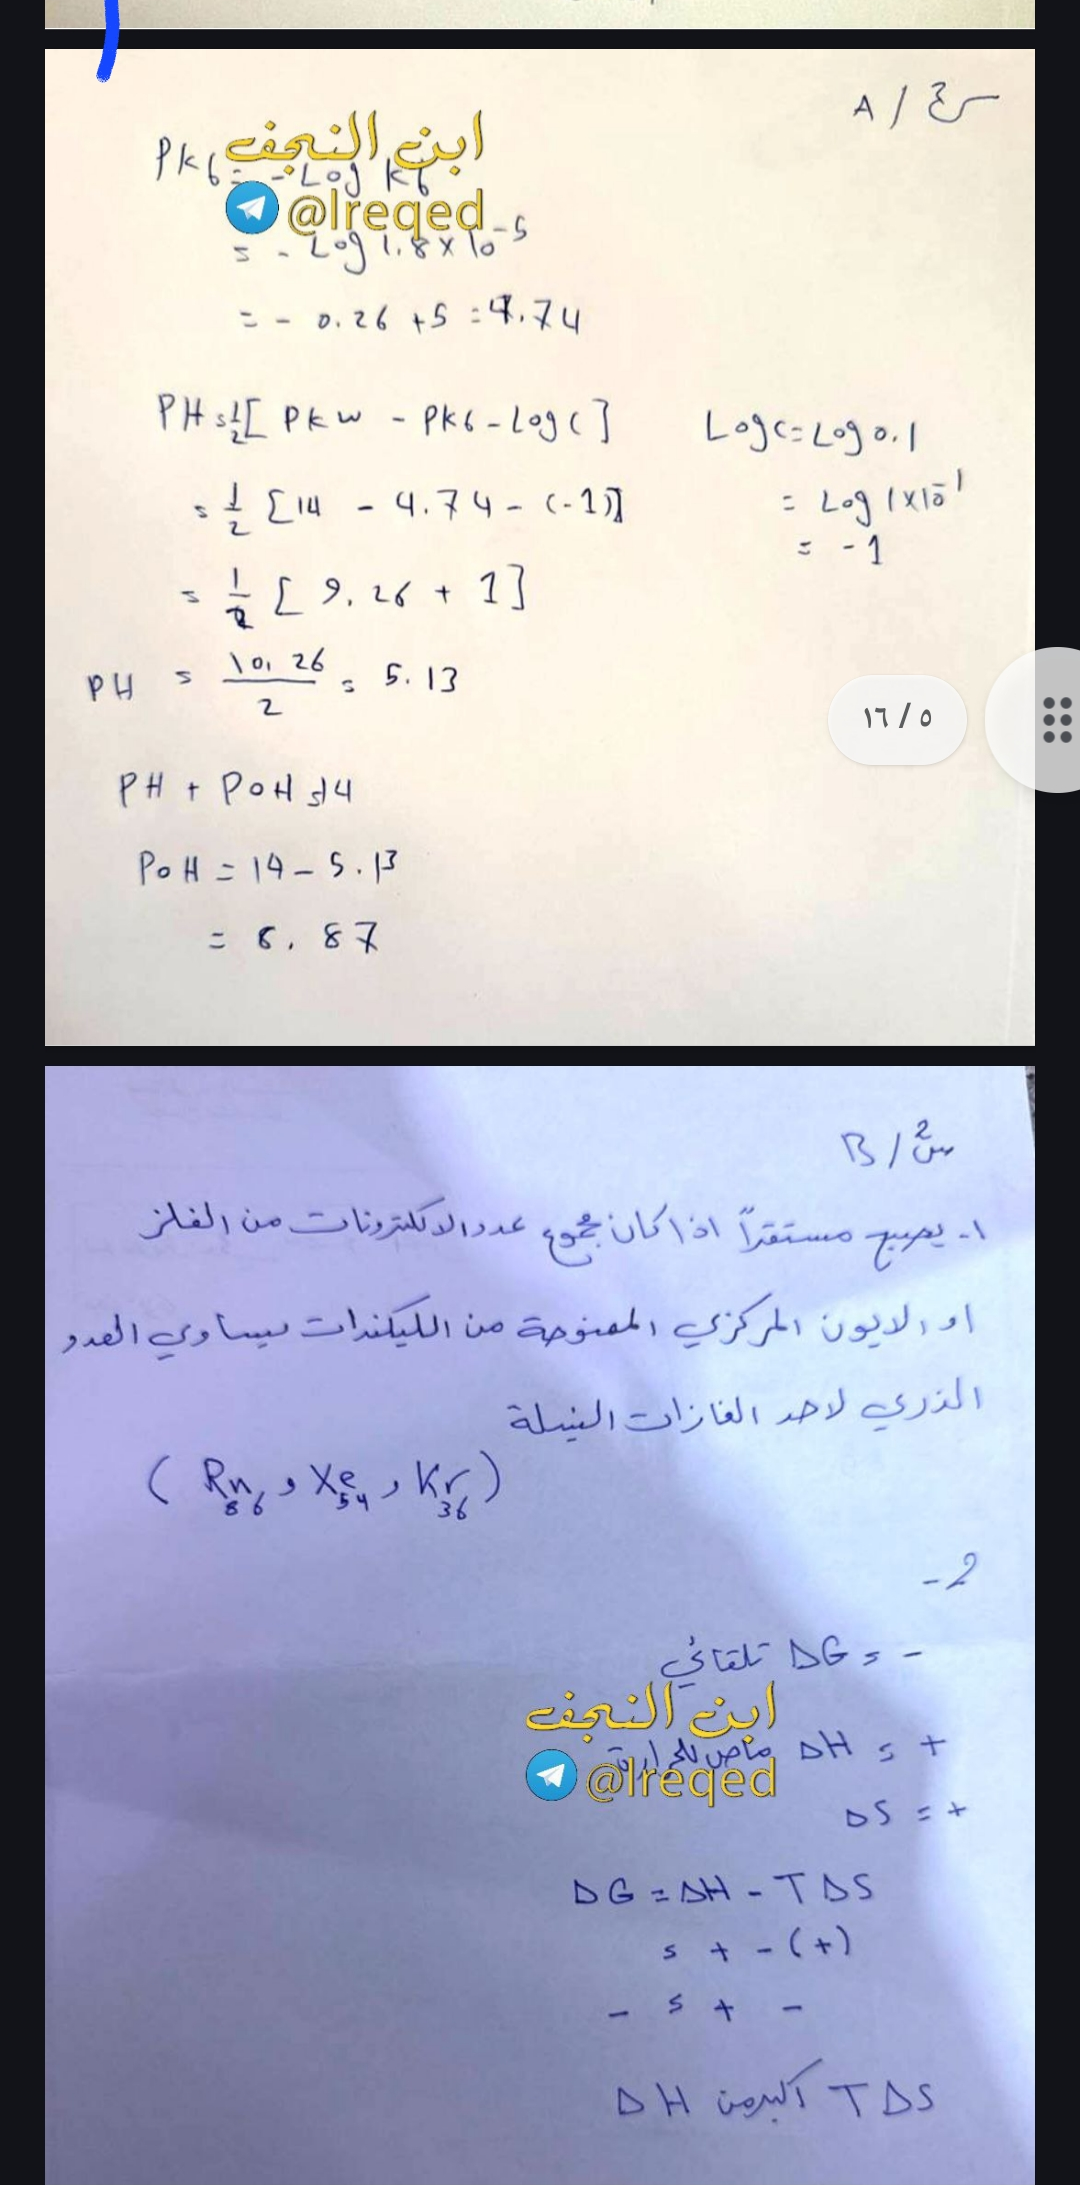 A / س3
ابن النجف
PKb = - Log Kb
@lreqed
= - Log 1.8 x 10^-5
= - 0.26 + 5 = 4.74
PH = 1/2 [ PKw - PKb - Log C ]
Log C = Log 0.1
= 1/2 [ 14 - 4.74 - (-1) ]
= Log 1 x 10^-1
= -1
= 1/2 [ 9.26 + 1 ]
PH = 10.26 / 2 = 5.13
١٦ / ٥
PH + POH = 14
POH = 14 - 5.13
= 8.87
B / س2
١- يصبح مستقراً اذا كان مجموع عدد الالكترونات من الفلز
او الايون المركزي الممنوحة من الليكندات يساوي العدد
الذري لاحد الغازات النبيلة
( 86Rn و 54Xe و 36Kr )
2 -
ΔG = - تلقائي
ابن النجف
ΔH = + ماص للحرارة
@lreqed
ΔS = +
ΔG = ΔH - TΔS
= + - (+)
- = + -
TΔS اكبر من ΔH